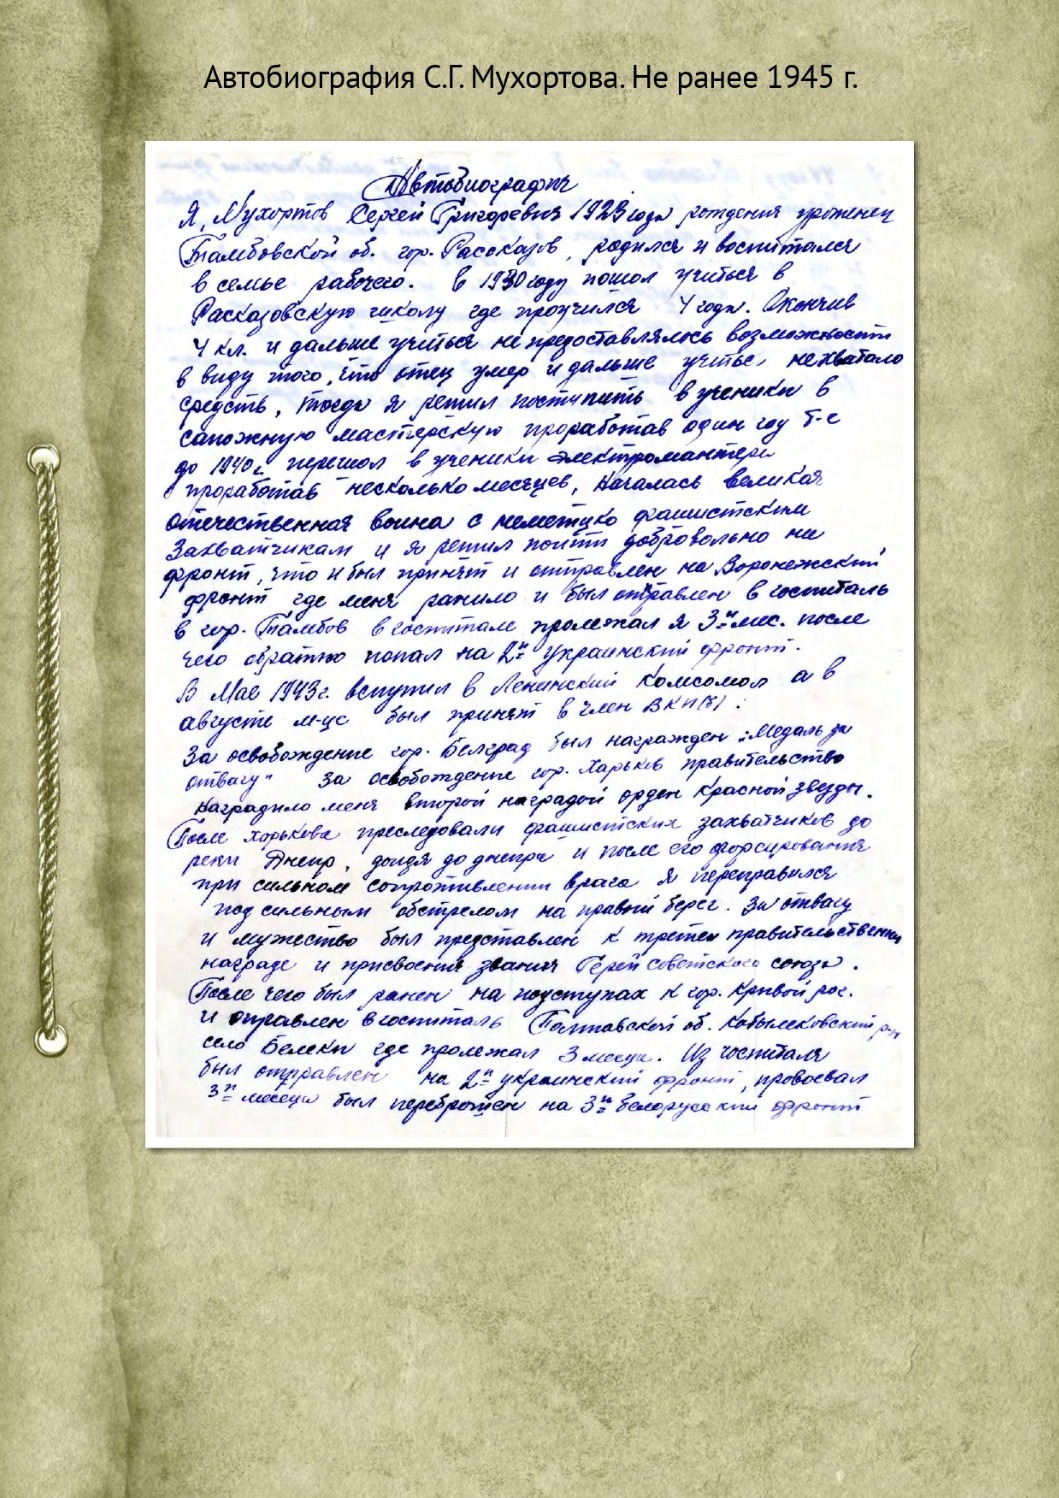 Автобиография С.Г. Мухортова. Не ранее 1945 г.
Автобиография
Я, Мухортов Сергей Григоревич 1923 года рождения уроженец
Тамбовской об. гор. Рассказов, родился и воспитался
в семье рабочего. в 1930 году пошол учиться в
Расказовскую школу где проучился 4 года. Окончив
4 кл. и дальше учиться не предоставлялось возможности
в виду того, что отец умер и дальше учитьс нехватало
средств, тогда я решил поступить в ученики в
сапожную мастерскую проработав один году т-е
до 1940г. перешол в ученики электромантера
проработав несколько месяцев, началась великая
отечественная воина с неметцко фашистским
захватчикам и я решил поити добровольно на
фронт, что и был принят и отправлен на Воронежский
фронт где меня ранило и был отправлен в госпиталь
в гор. Тамбов в госпитале пролежал я 3-и мес. после
чего обратно попал на 2-й украинский фронт.
В Мае 1943г. вступил в Ленинский Комсомол а в
августе м-це был принят в член ВКП(б).
За освобождение гор. Белград был награжден „Медаль за
отвагу" за освобождение гор. Харьков правительство
наградило меня второй наградой орден Красной звезды.
После хорькова преследовали фашистских захватчиков до
реки Днепр, доидя до днепра и после его форсирования
при сильном сопротивлении врага я переправился
под сильным обстрелом на правый берег. За отвагу
и мужество был представлен к третеи правительственна
награде и присвоения звания Герой Советского союза.
После чего был ранен на подступах к гор. Кривой рог.
и отравлен в госпиталь Полтавской об. Кобылековский р-н
село Белеки где пролежал 3 месеца. Из госпиталя
был отправлен на 2-й украинский фронт, провоевал
3-и месеца был переброшен на 3-й белорусский фронт